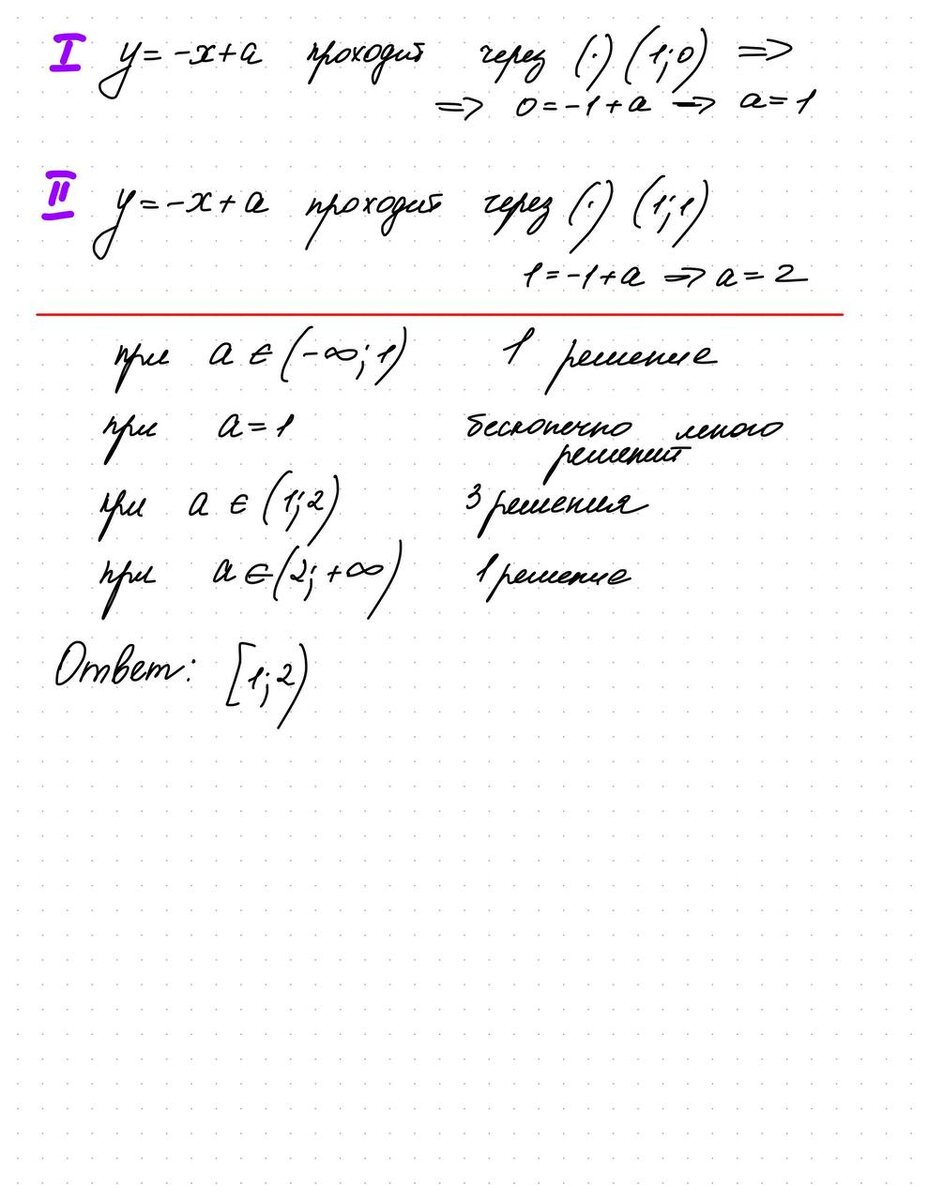 I y = -x + a проходит через (·) (1;0) =>
=> 0 = -1 + a => a = 1
II y = -x + a проходит через (·) (1;1)
1 = -1 + a => a = 2
при a ∈ (-∞; 1) 1 решение
при a = 1 бесконечно много
решений
при a ∈ (1;2) 3 решения
при a ∈ (2; +∞) 1 решение
Ответ: [1;2)